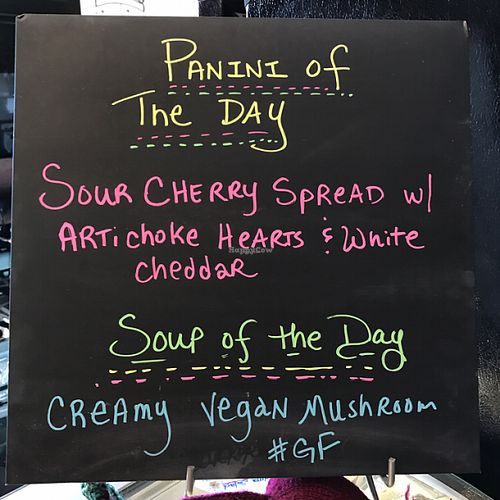 Panini of
The Day
Sour Cherry Spread w/
Artichoke Hearts & White
Cheddar
HappyCow
Soup of the Day
Creamy Vegan Mushroom
#GF